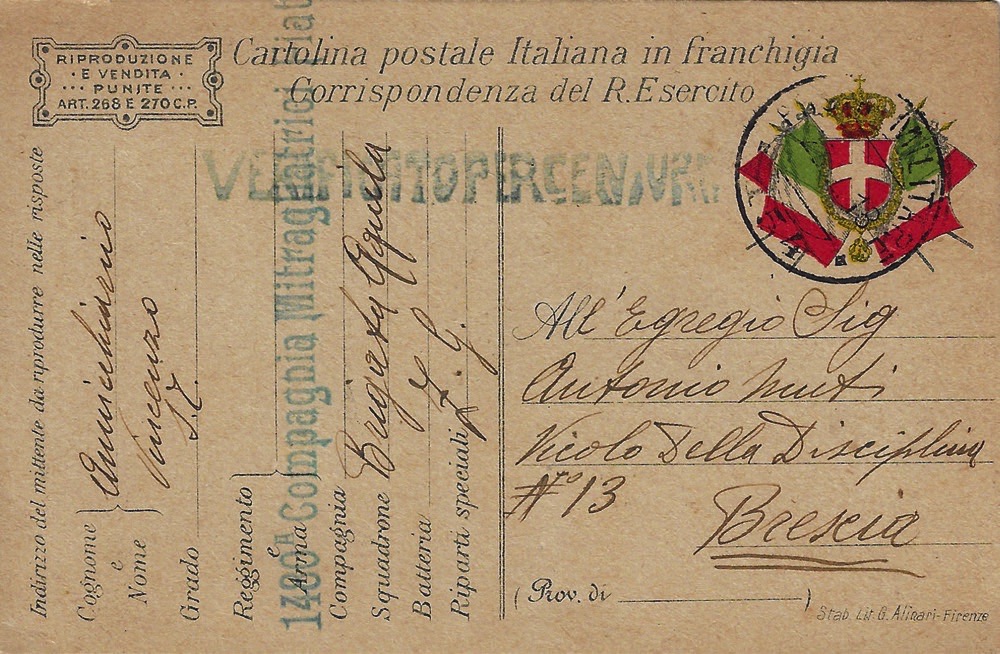 RIPRODUZIONE
E VENDITA
PUNITE
ART. 268 E 270 C.P.
Cartolina postale Italiana in franchigia
Corrispondenza del R. Esercito
VERIFICATO PER CENSURA
MILITARE
Indirizzo del mittente da riprodurre nelle risposte
Cognome
e
Nome
Vincenzo
Grado
Reggimento
e
Arma
1400ª Compagnia Mitragliatrici
Compagnia
Squadrone
Brigata
Batteria
Riparti speciali
Z. G.
All' Egregio Sig
Antonio
Vicolo Della Disciplina
Nº 13
Brescia
(Prov. di )
Stab. Lit. G. Alinari-Firenze